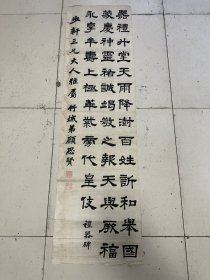 器禮升堂天雨降澍百姓訢和舉國
蒙慶神靈祐誠竭敬之報天與厥福
永享牟壽上極華紫旁代皇伎 禮器碑
軒三兄大人雅屬 竹城弟顧恩賢